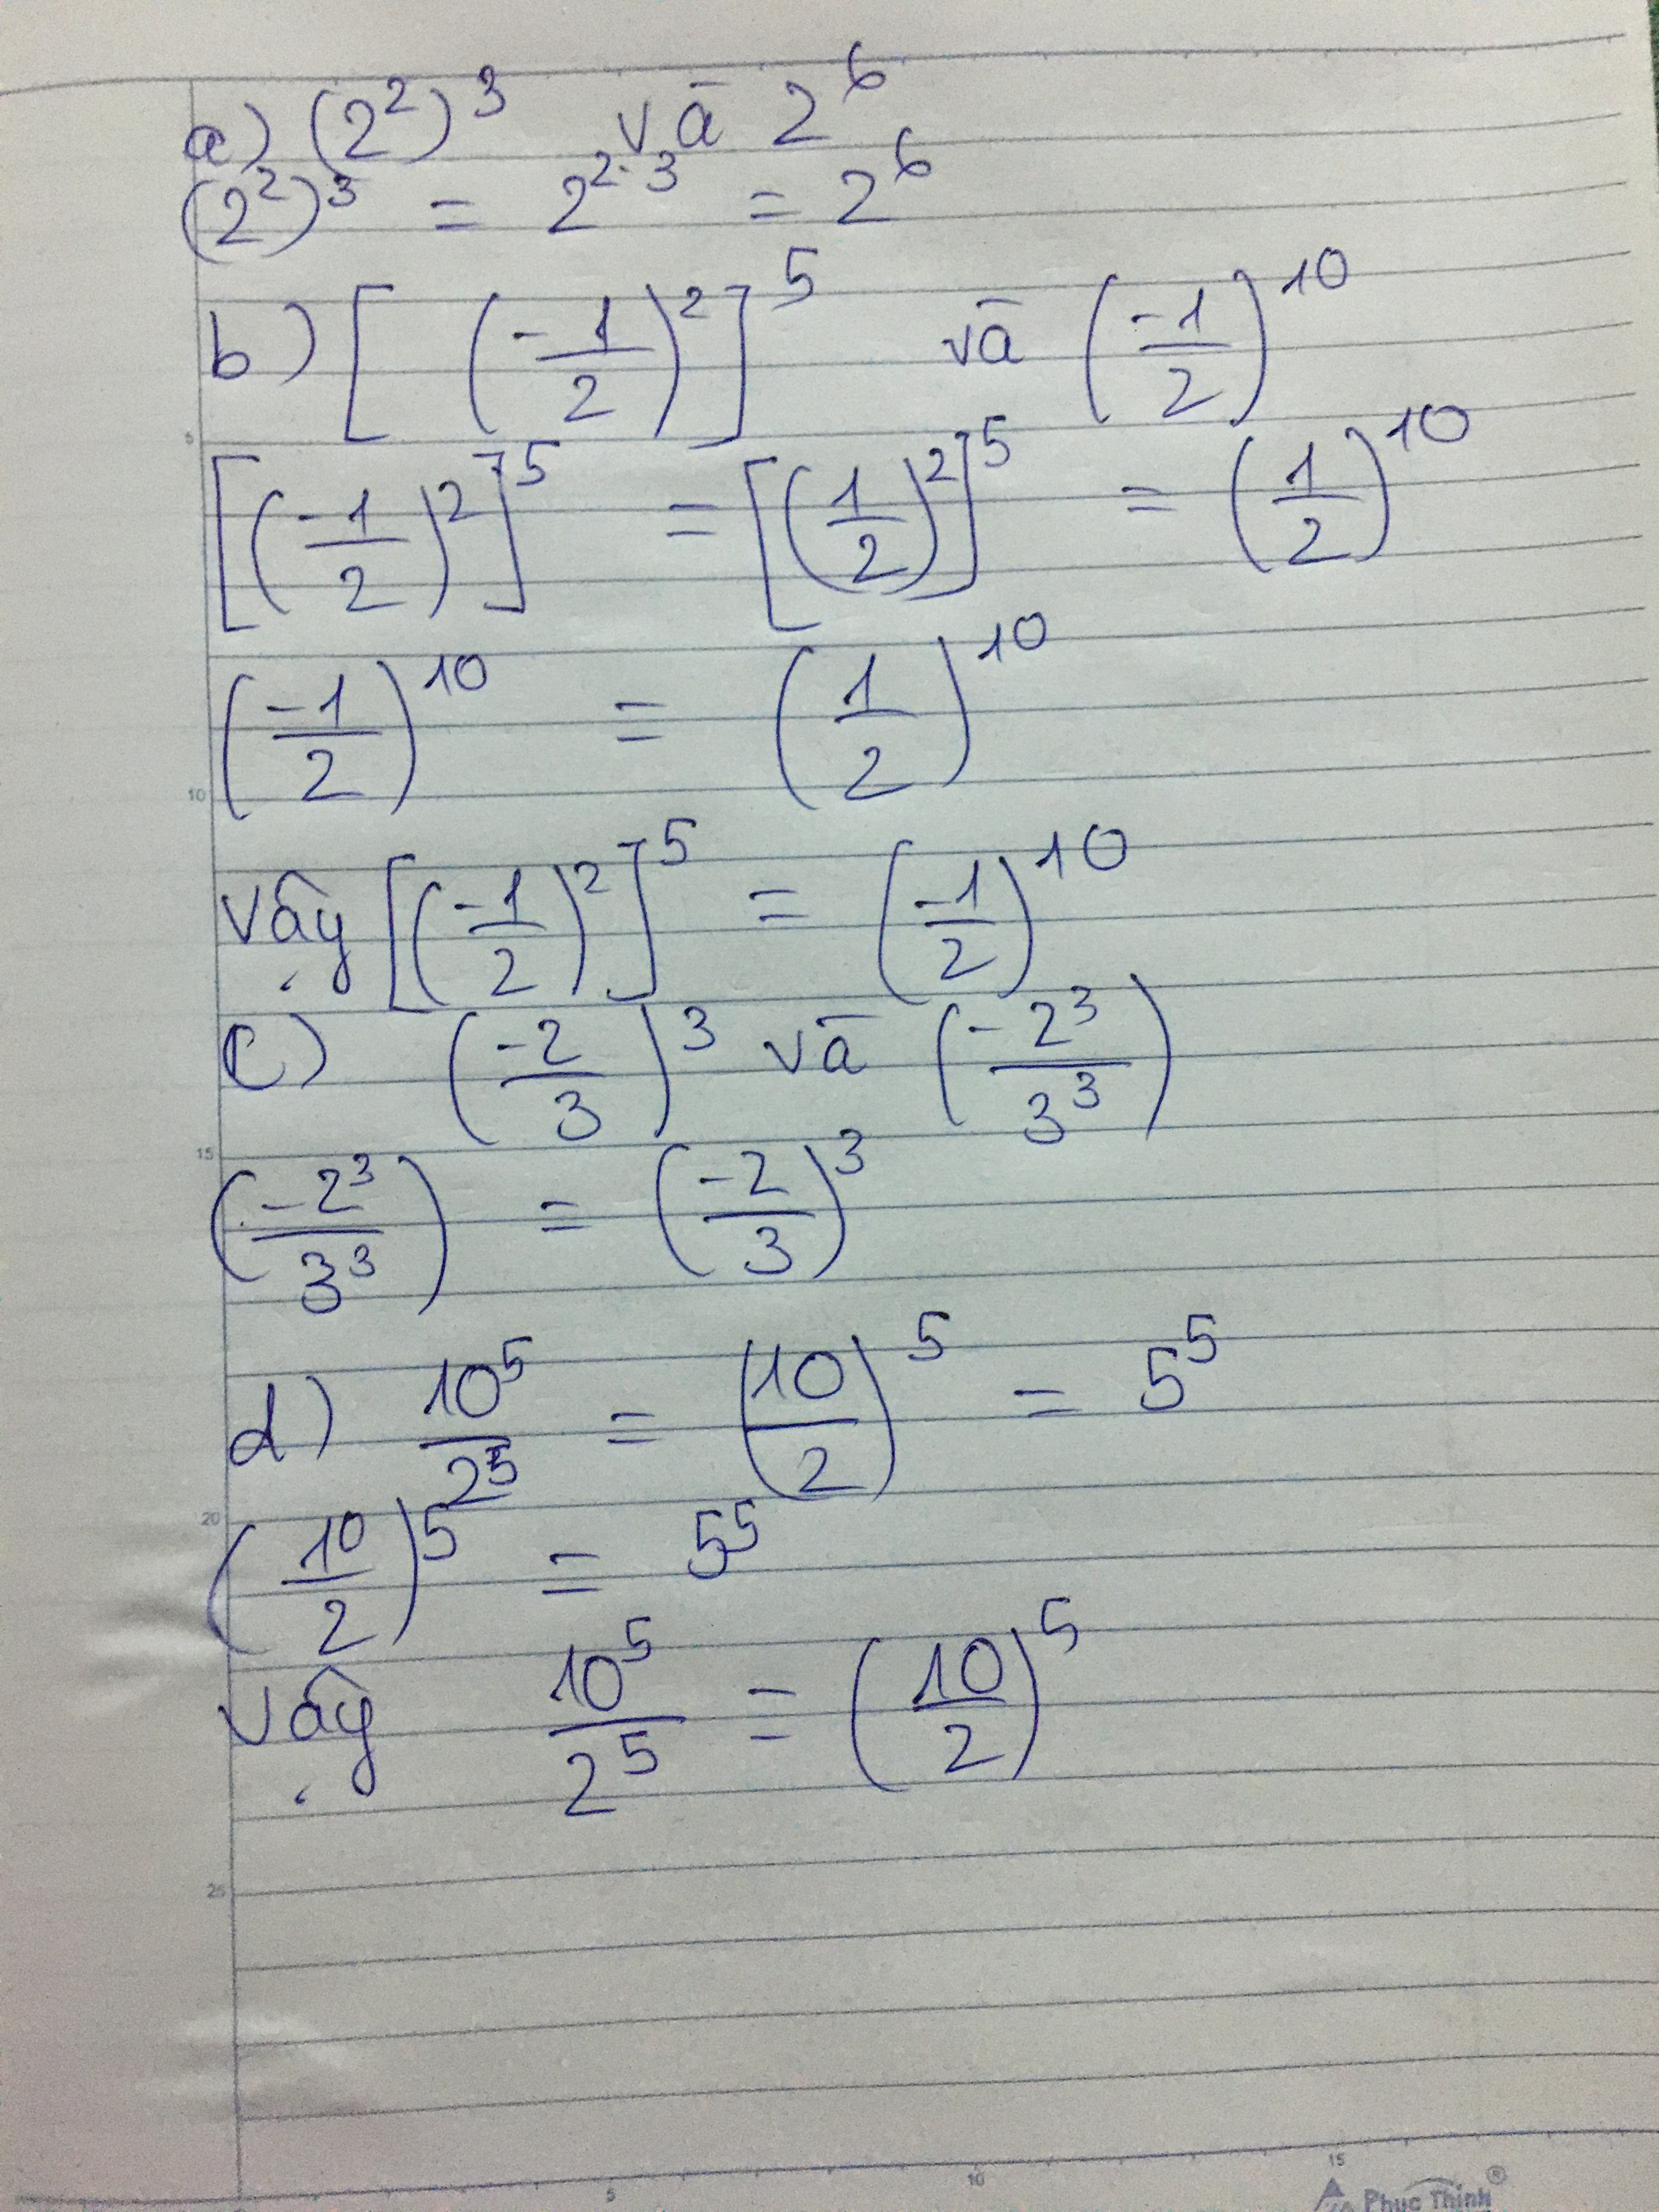 a) (2²)³ và 2⁶
(2²)³ = 2^{2·3} = 2⁶
b) [(-1/2)²]⁵ và (-1/2)¹⁰
[(-1/2)²]⁵ = [(1/2)²]⁵ = (1/2)¹⁰
(-1/2)¹⁰ = (1/2)¹⁰
Vậy [(-1/2)²]⁵ = (-1/2)¹⁰
c) (-2/3)³ và (-2³/3³)
(-2³/3³) = (-2/3)³
d) 10⁵/2⁵ = (10/2)⁵ = 5⁵
(10/2)⁵ = 5⁵
Vậy 10⁵/2⁵ = (10/2)⁵
5
10
15
20
25
5 10 15
Phuc Thinh ®